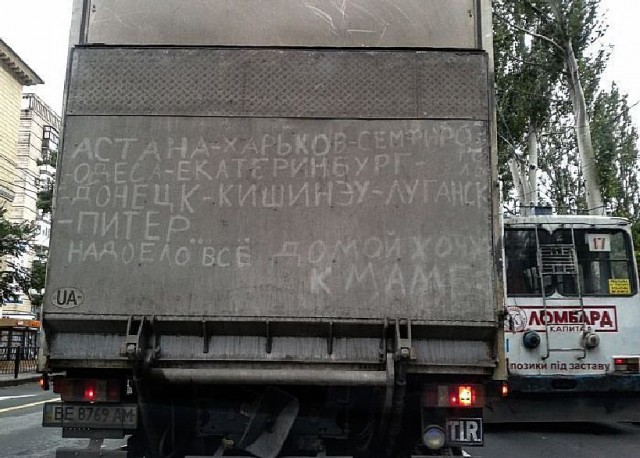 АСТАНА-ХАРЬКОВ-СЕМФИРО-
ОДЕСА-ЕКАТЕРИНБУРГ-
-ДОНЕЦК-КИШИНЭУ-ЛУГАНСК
-ПИТЕР
НАДОЕЛО "ВСЁ ДОМОЙ ХОЧУ
К МАМЕ
UA
ВЕ 8769 АМ
TIR
17
ЛОМБАРД
КАПИТАЛ
позики під заставу